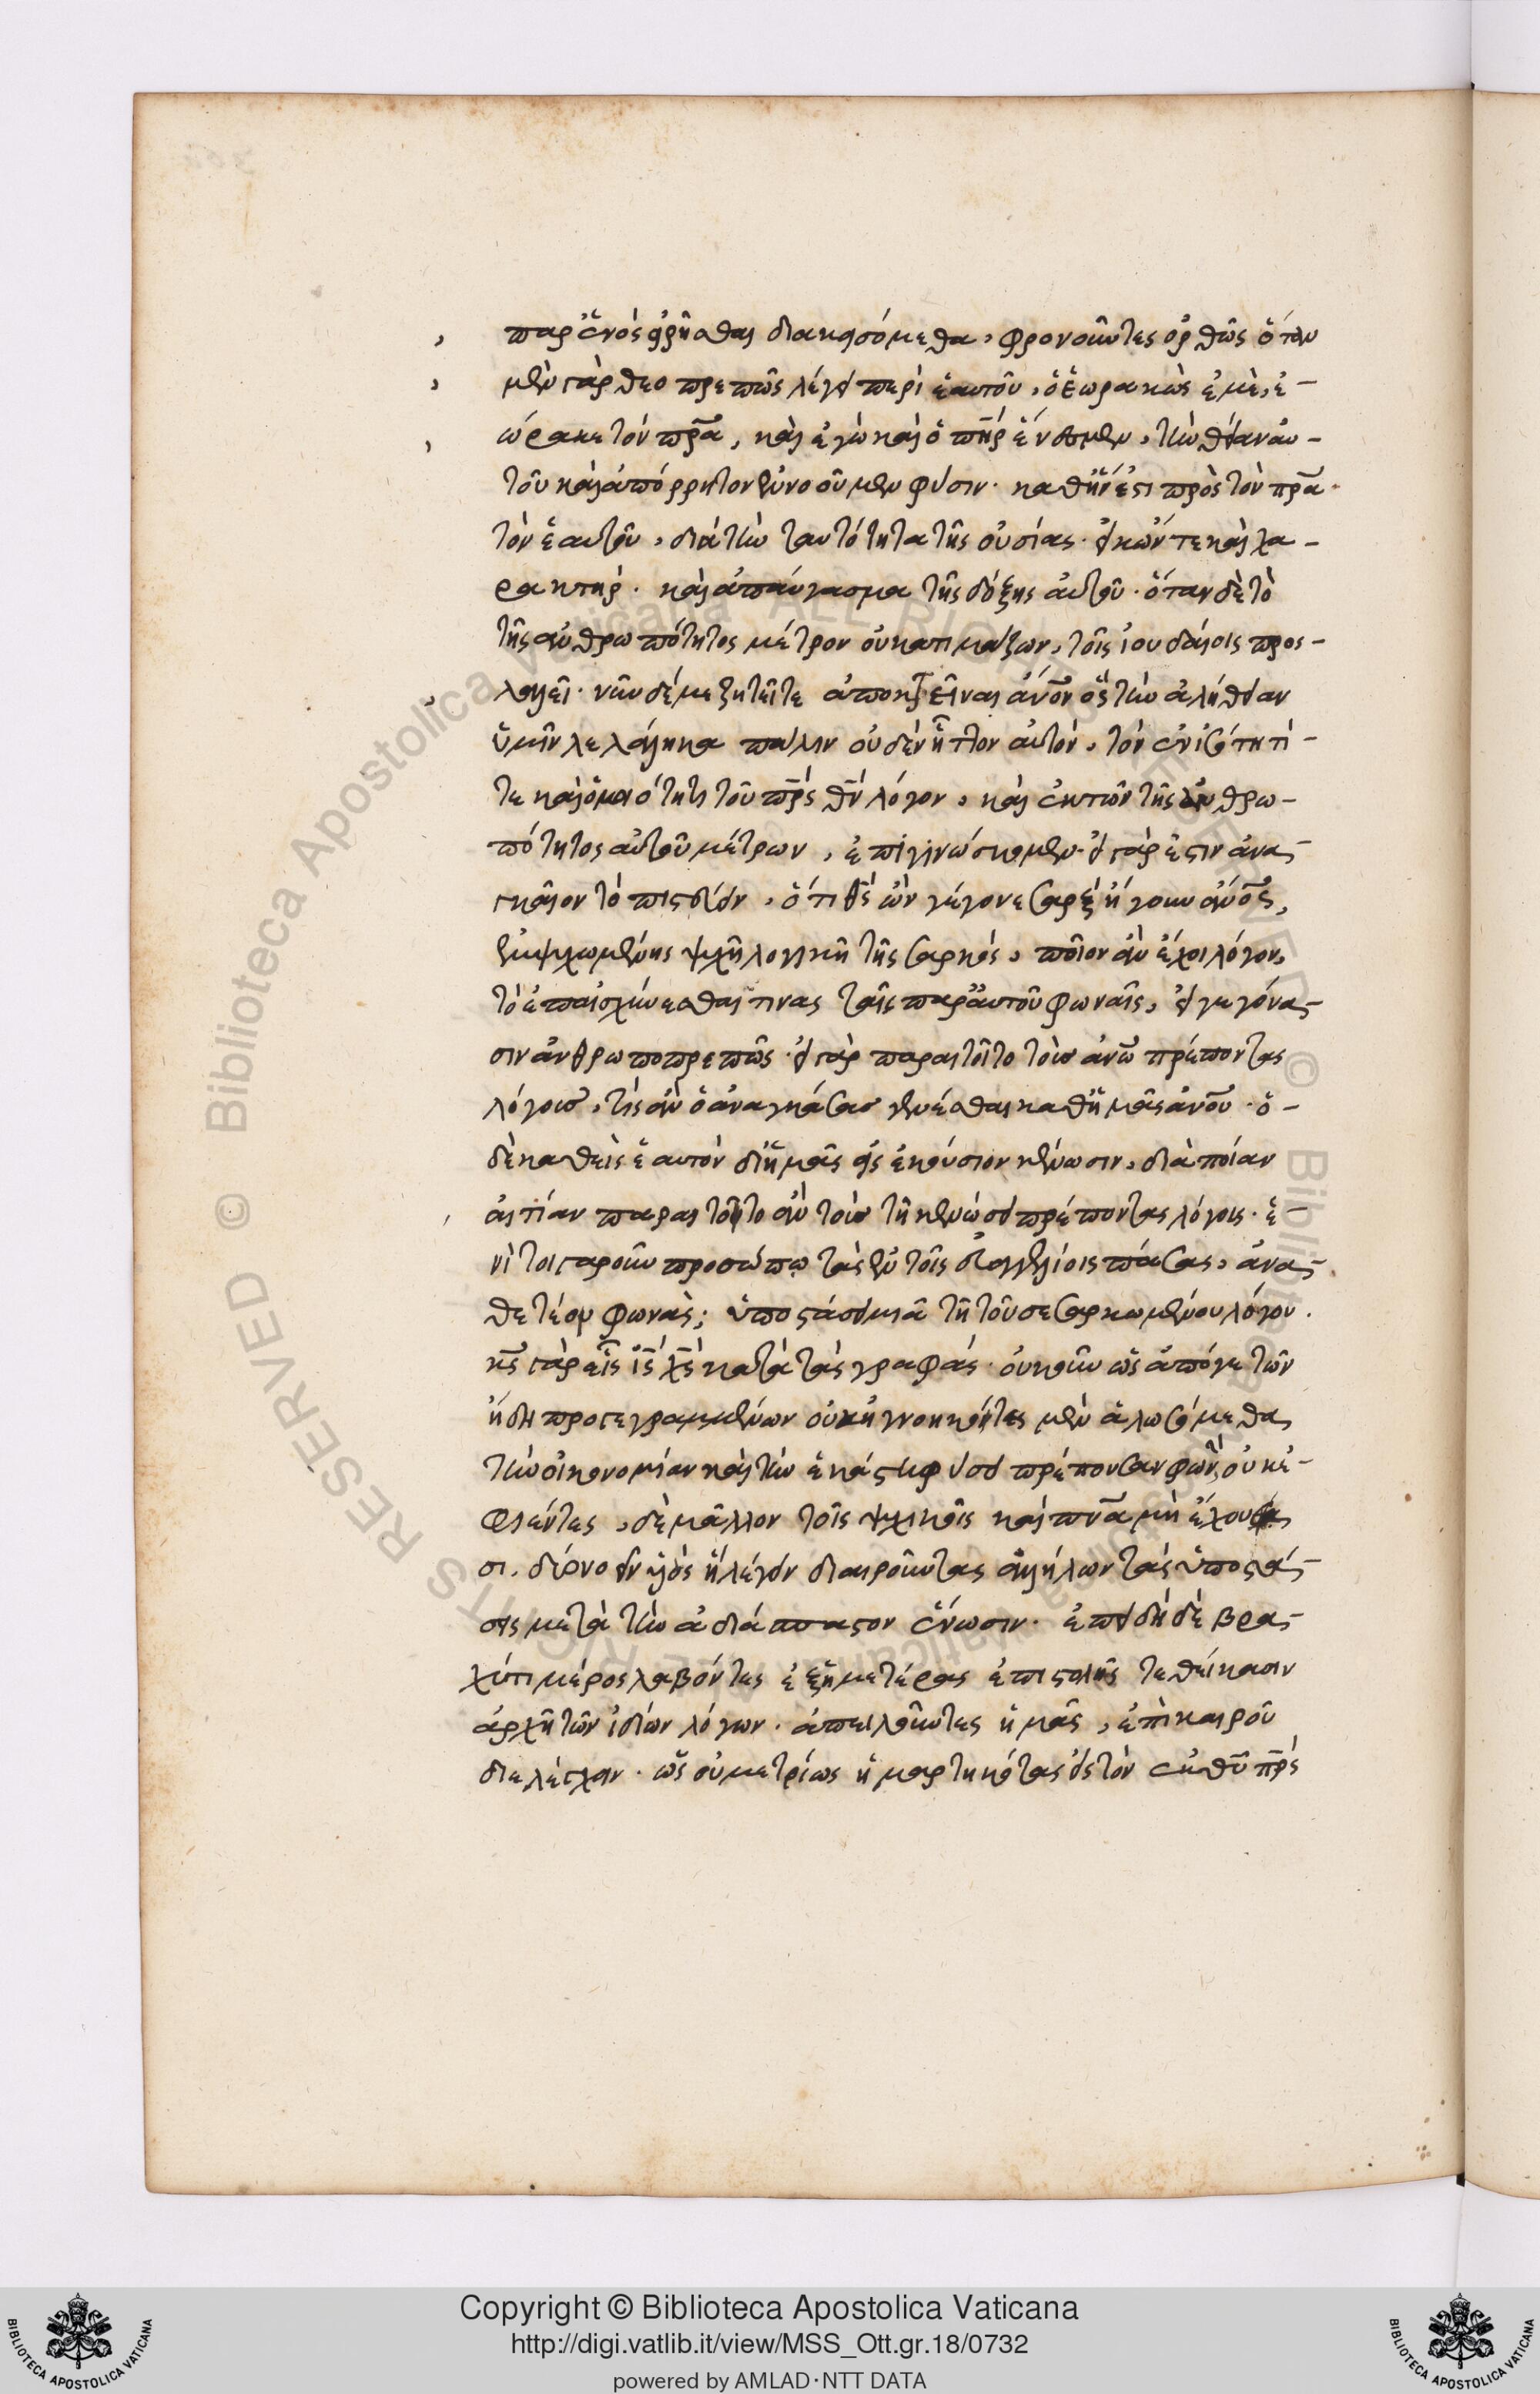 παρ' ἑνὸς εἰρῆσθαι διακεισόμεθα, φρονοῦντες ὀρθῶς ὅταν
μὲν γὰρ θεοπρεπῶς λέγει περὶ ἑαυτοῦ, ὁ ἑωρακὼς ἐμὲ, ἑ-
ώρακε τὸν πρ̅α, καὶ ἐγὼ καὶ ὁ πη̅ρ ἕν ἐσμεν, τὴν θείαν αὐ-
τοῦ καὶ ἀπόρρητον ἐννοοῦμεν φύσιν· καθ' ἣν ἕν ἐστι πρὸς τὸν πρ̅α
τὸν ἑαυτοῦ, διὰ τὴν ταυτότητα τῆς οὐσίας· εἰκών τε καὶ χα-
ρακτὴρ· καὶ ἀπαύγασμα τῆς δόξης αὐτοῦ· ὅταν δὲ τὸ
τῆς ἀνθρωπότητος μέτρον οὐκ ἀτιμάζων, τοῖς ἰουδαίοις προσ-
λαλεῖ· νῦν δέ με ζητεῖτε ἀποκτεῖναι ἀν̅ον ὃς τὴν ἀλήθειαν
ὑμῖν λελάληκα πάλιν οὐδὲν ἧττον αὐτὸν, τὸν ἐν ἰσότητί
τε καὶ ὁμοιότητι τοῦ πρ̅ς θν̅ λόγον, καὶ ἐκ τῶν τῆς ἀνθρω-
πότητος αὐτοῦ μέτρων, ἐπιγινώσκομεν· εἰ γάρ ἐστιν ἀναγ-
καῖον τὸ πιστεύειν, ὅτι θς̅ ὢν γέγονε σὰρξ ἤγουν ἀν̅ος,
ἐμψυχωμένης ψυχῇ λογικῇ τῆς σαρκὸς, ποῖον ἂν ἔχοι λόγον,
τὸ ἐπαισχύνεσθαί τινας ταῖς παρ' αὐτοῦ φωναῖς, εἰ γεγόνα-
σιν ἀνθρωποπρεπῶς· εἰ γὰρ παραιτοῖτο τοὺς ἀν̅ω πρέποντας
λόγους, τίς ἦν ὁ ἀναγκάσας γενέσθαι καθ' ἡμᾶς ἀν̅ον· ὁ
δὲ καθεὶς ἑαυτὸν δι' ἡμᾶς εἰς ἑκούσιον κένωσιν, διὰ ποίαν
αἰτίαν παραιτοῖτο ἂν τοὺς τῇ κενώσει πρέποντας λόγους· ἑ-
νὶ τοιγαροῦν προσώπῳ τὰς ἐν τοῖς εὐαγγελίοις πάσας, ἀνα-
θετέον φωνὰς; ὑποστάσει μιᾷ τῇ τοῦ σεσαρκωμένου λόγου.
κς̅ γὰρ εἷς ις̅ χς̅ κατὰ τὰς γραφάς· οὐκοῦν ὡς ἀπό γε τῶν
ἤδη προγεγραμμένων οὐκ ἠγνοηκότες μὲν ἁλωσόμεθα
τὴν οἰκονομίαν καὶ τὴν ἑκάστῃ φύσει πρέπουσαν φωνὴν, οὐκ ἐ-
φιέντες, δὲ μᾶλλον τοῖς ψυχικοῖς καὶ πν̅α μὴ ἔχου
σι. διανοεῖσθαι ἢ λέγειν διαιροῦντας ἀλλήλων τὰς ὑποστά-
σεις μετὰ τὴν ἀδιάσπαστον ἕνωσιν· ἐπειδὴ δὲ βρα-
χύ τι μέρος λαβόντες ἐξ ἡμετέρας ἐπιστολῆς τεθείκασιν
ἀρχῇ τῶν ἰδίων λόγων· ἀπειλοῦντες ἡμᾶς, ἐπὶ καιροῦ
διελέγχειν· ὡς οὐ μετρίως ἡμαρτηκότας εἰς τὸν ἐκ θυ̅ πρ̅ς
Copyright © Biblioteca Apostolica Vaticana
http://digi.vatlib.it/view/MSS_Ott.gr.18/0732
powered by AMLAD·NTT DATA